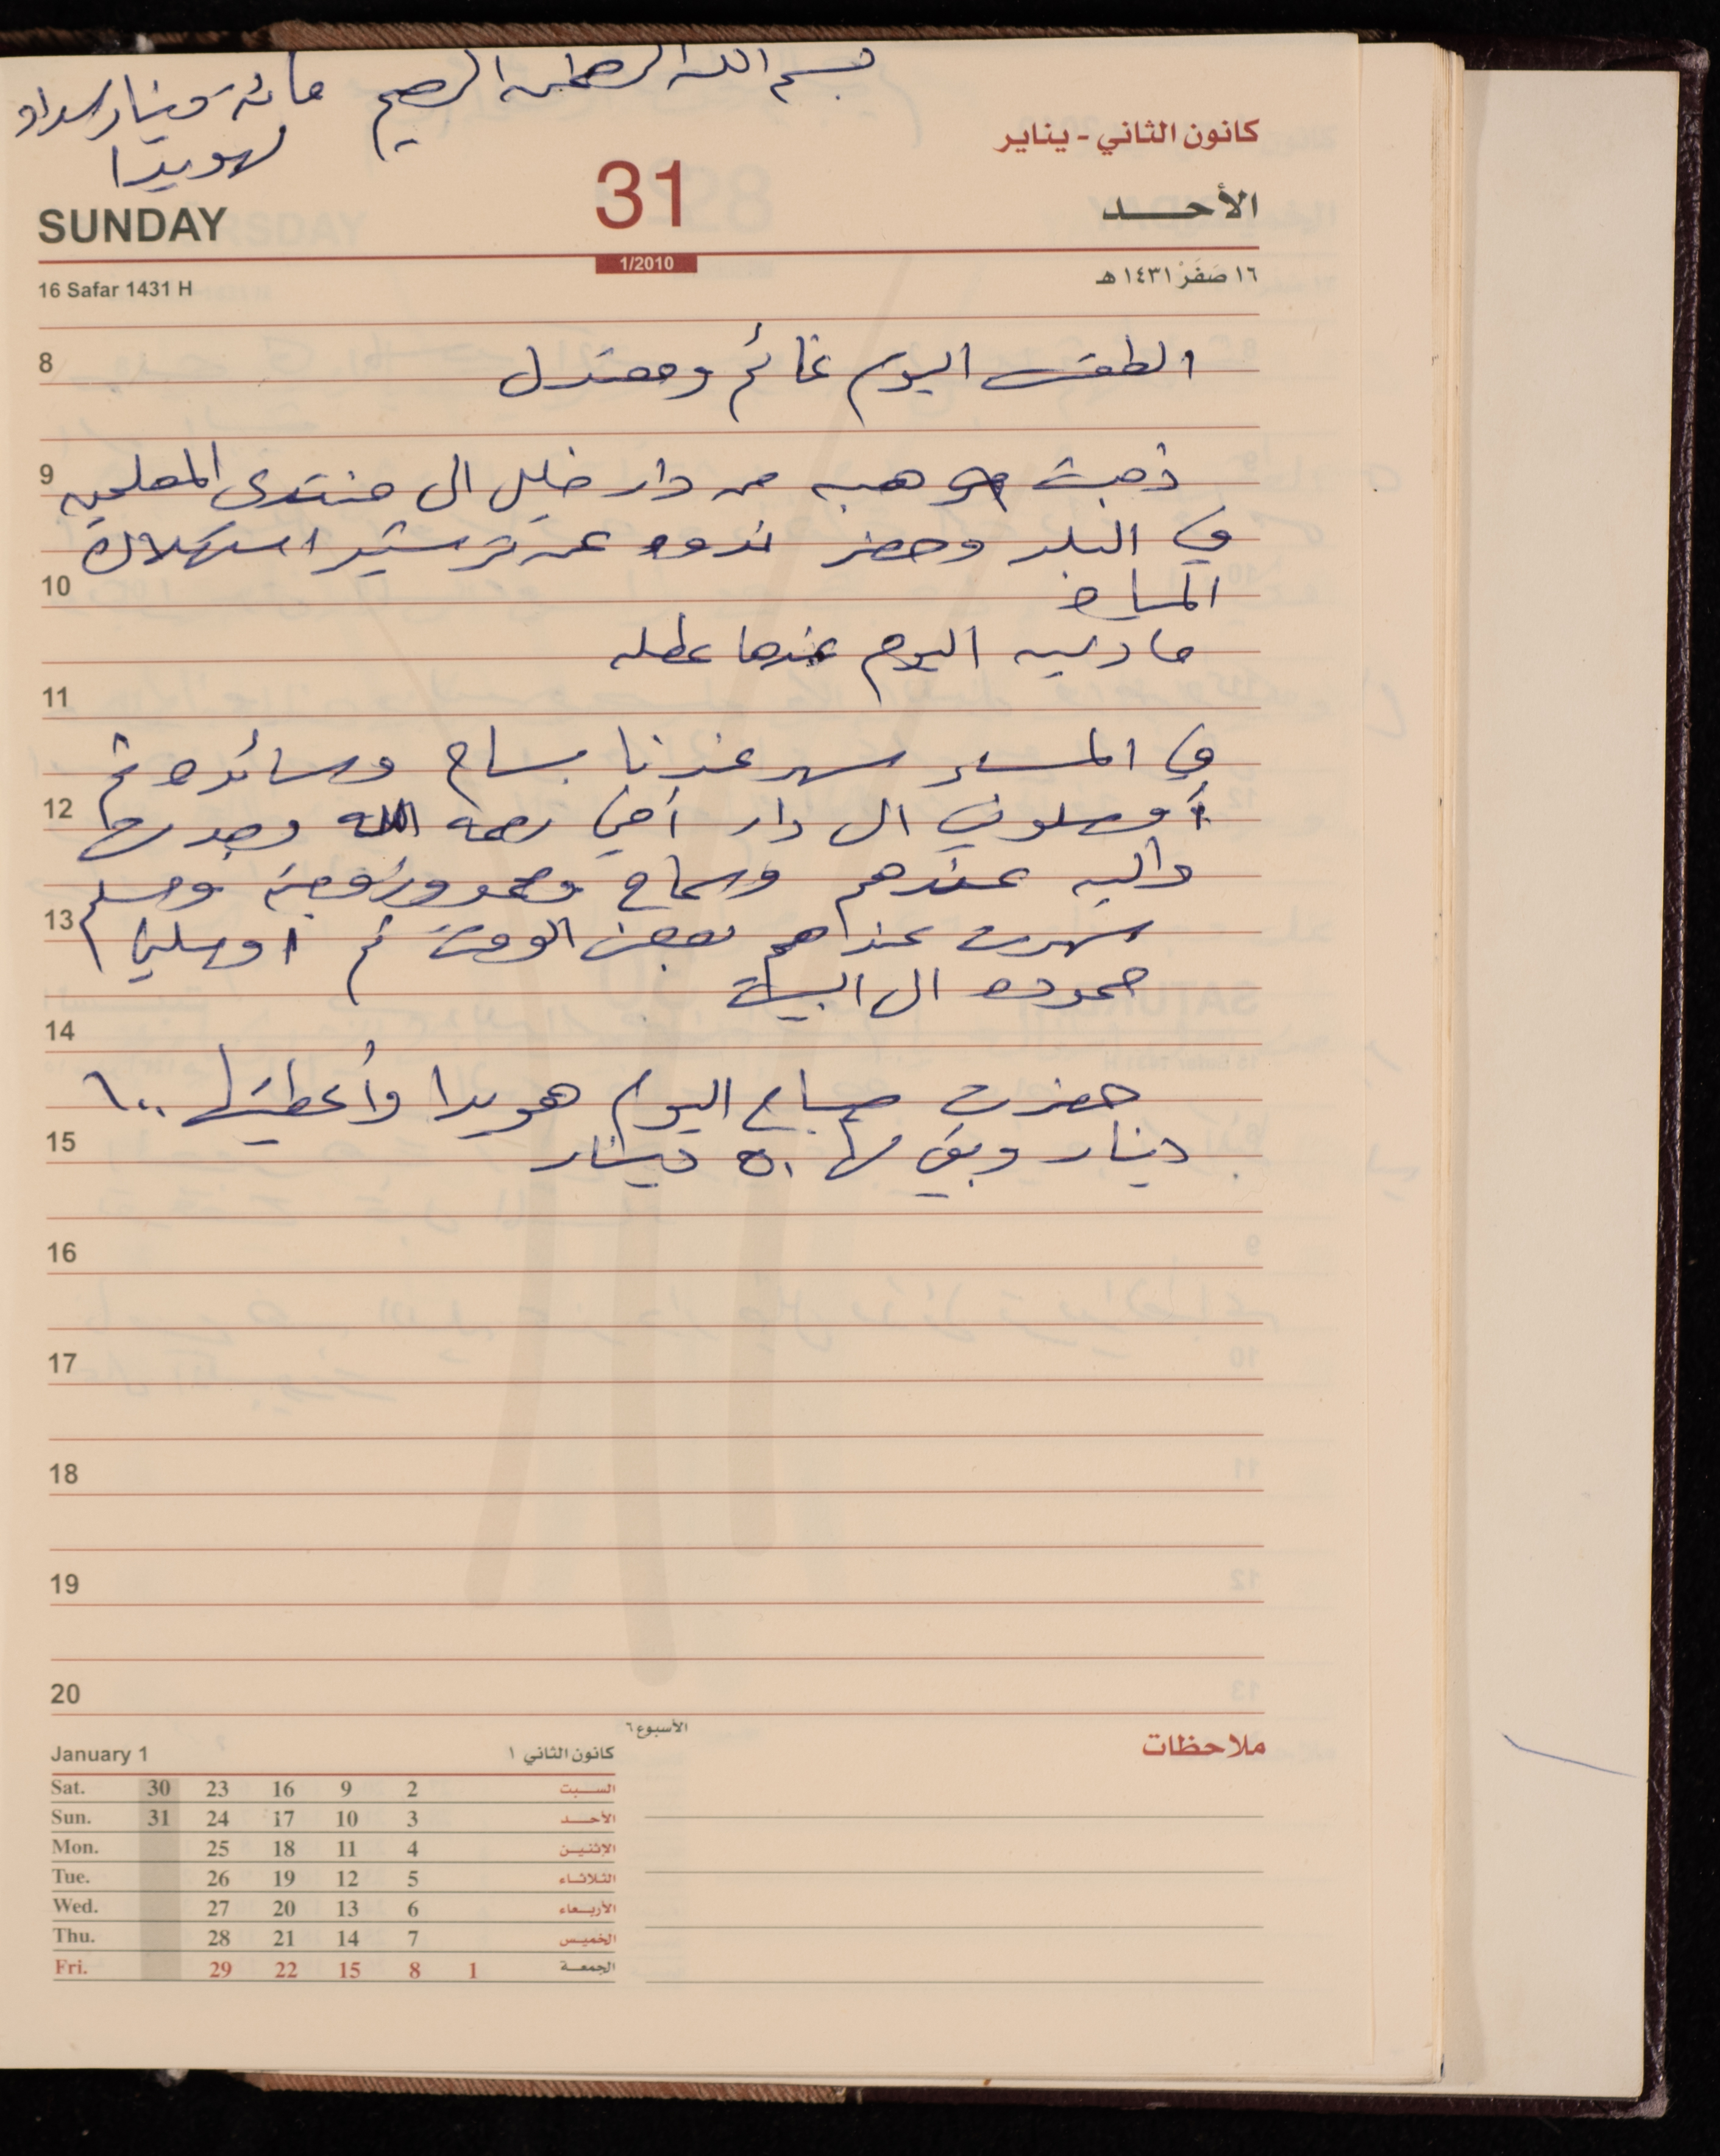 بسم الله الرحمن الرحيم مائة دينار سداد
لهويدا
كانون الثاني - يناير
31
SUNDAY
الأحد
1/2010
16 Safar 1431 H
١٦ صَفَرْ ١٤٣١ هـ
8
الطقس اليوم غائم ومعتدل
9
ذهبت هبه من دار خليل الى منتدى المعلمين
في البلد وحضر ندوه عن ترشيد استهلاك
10
المياه
مادلين اليوم عندها عطله
11
في المساء سهر عندنا بسام وسائده ثم
12
أوصلوني الى دار أختي رحمه الله وجدتها
داليه عندهم وسماح ومحمود ورفيقة ومسلم
13
سهرت عندهم بعض الوقت ثم اوصلني
حموده الى البيت
14
حضرت صباح اليوم هويدا وأعطيتها ١٠٠
15
دينار وبقي لها ٥٠ دينار
16
17
18
19
20
الأسبوع ٦
ملاحظات
January 1
كانون الثاني ١
Sat. 30 23 16 9 2 السبت
Sun. 31 24 17 10 3 الأحد
Mon. 25 18 11 4 الإثنين
Tue. 26 19 12 5 الثلاثاء
Wed. 27 20 13 6 الأربعاء
Thu. 28 21 14 7 الخميس
Fri. 29 22 15 8 1 الجمعة